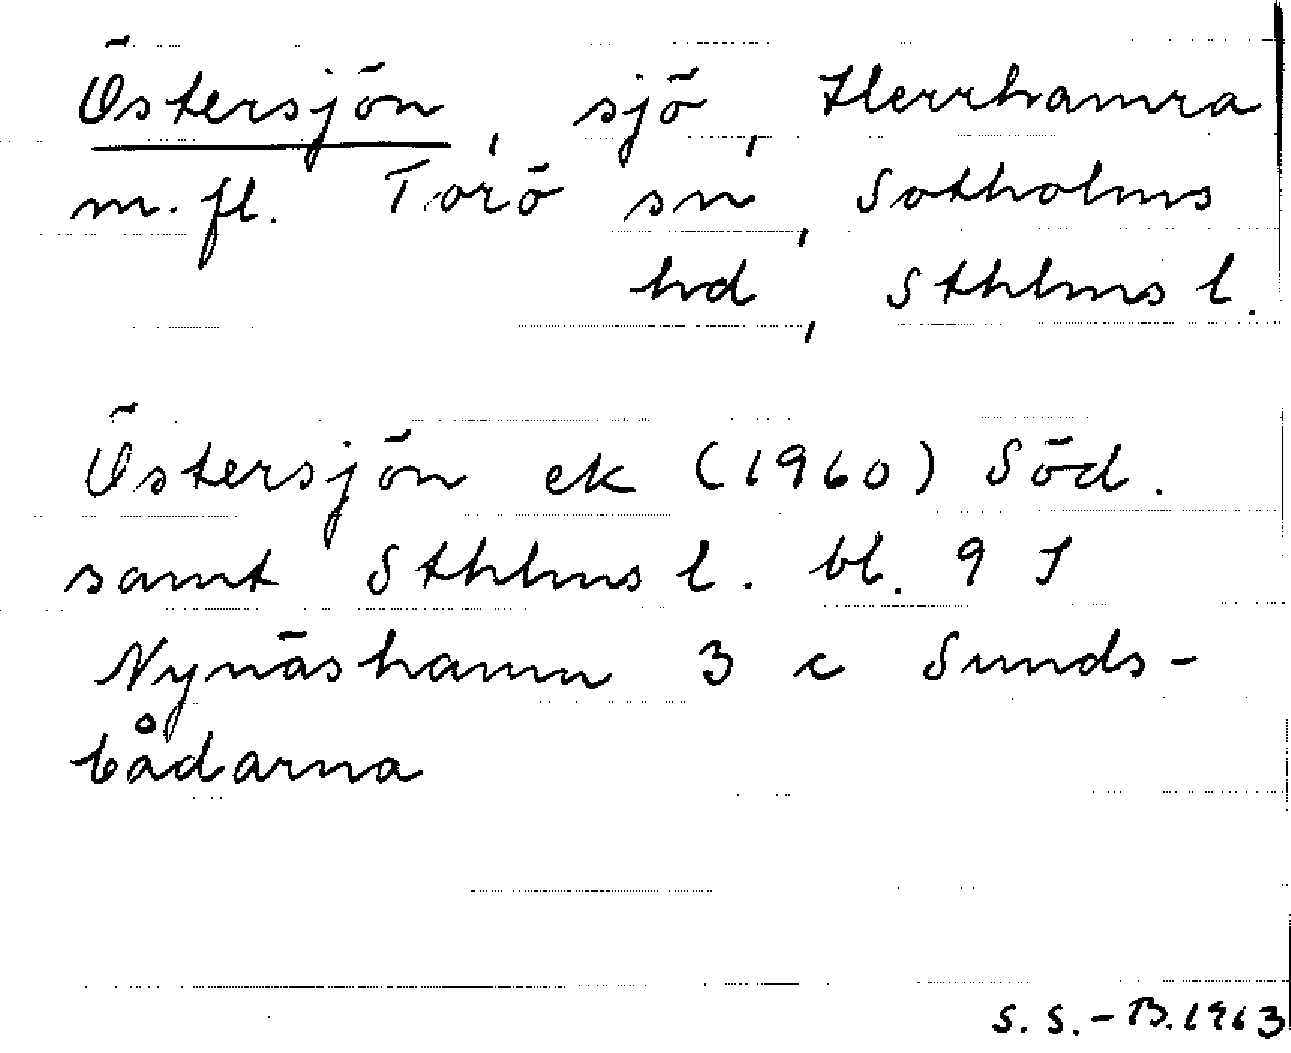 Östersjön, sjö, Herrhamra
m. fl. Torö sn, Sotholms
hd, Sthlms l.
Östersjön ek (1960) Söd.
samt Sthlms l. bl. 9 I
Nynäshamn 3 c Sunds-
bådarna
S. S.-B. 1963